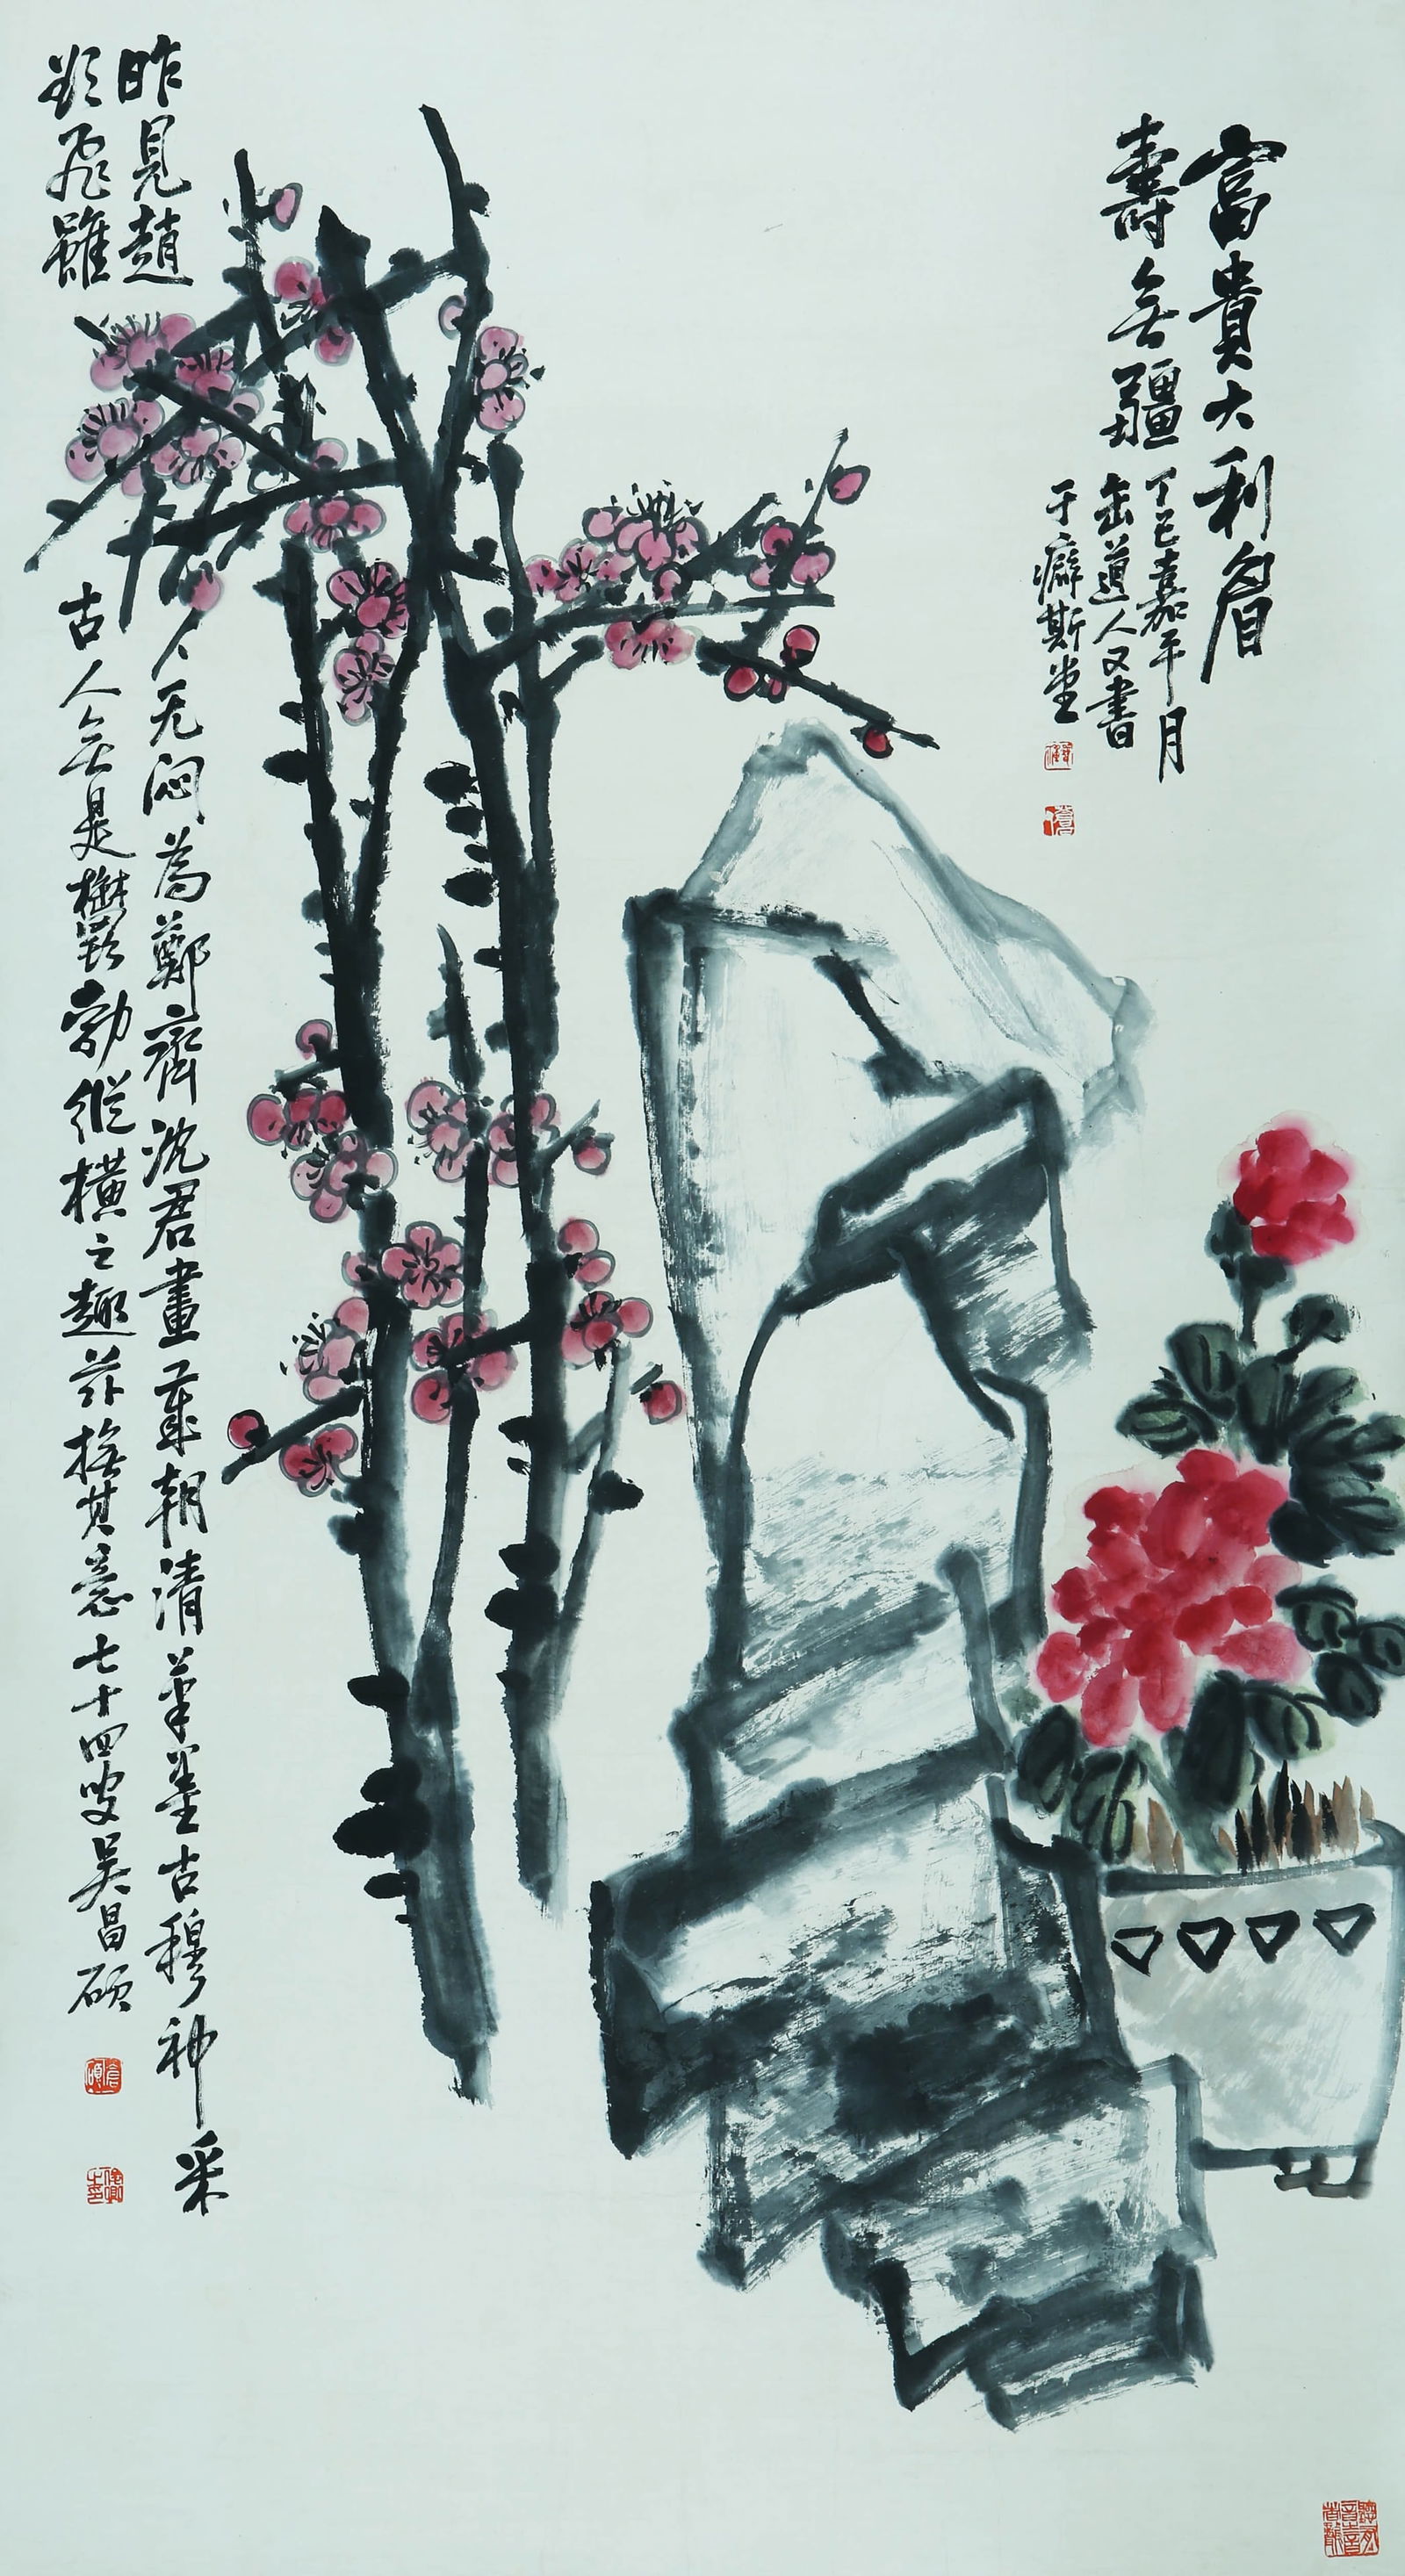 富貴大利眉
壽無疆
丁巳嘉平月
缶道人又書
于癖斯堂
昨見趙
人无悶為鄭齋沈君畫歲朝清華墨古穆神采
欲飛雖
古人無是鬱勃縱橫之趣茲撫其意七十四叟吳昌碩